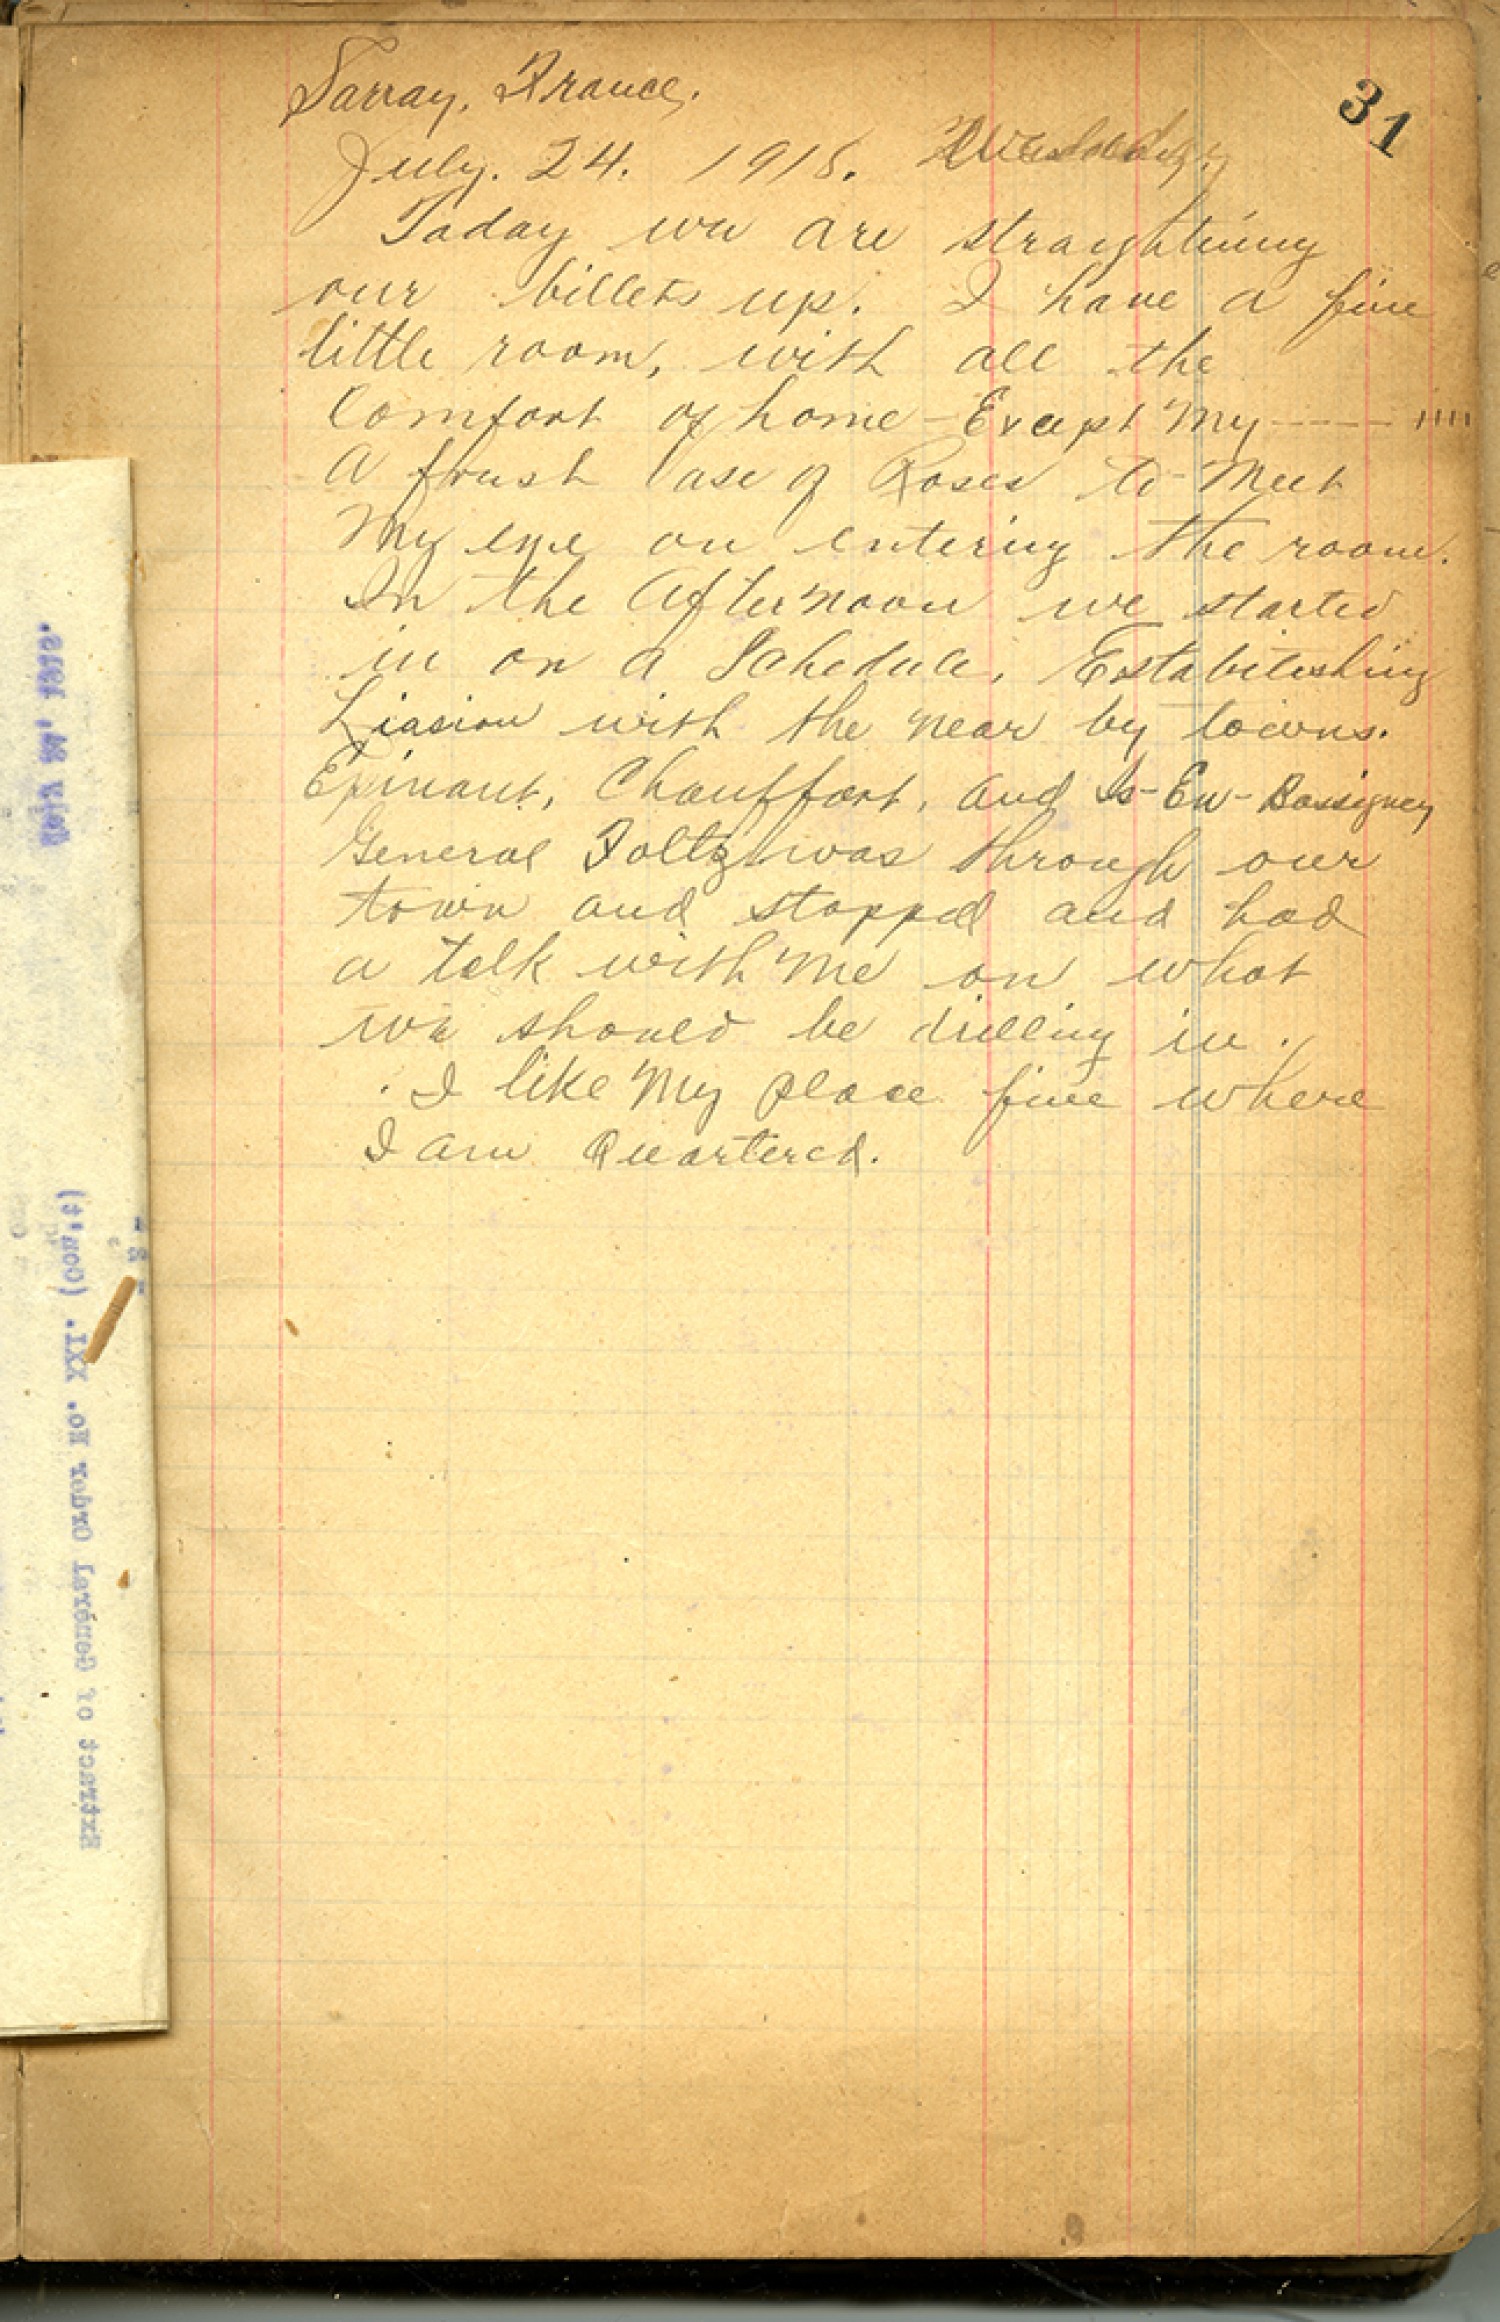 31
Sarray, France.
July. 24. 1918. Wednesday
Today we are straightining
our billets up. I have a fine
little room, with all the
Comfort of home - Except My ----- """
A frush Vase of Roses to Meet
My eye on entering the room.
In the Afternoon we started
in on a Schedule, Establishing
Liasion with the near by towns.
Epinant, Chauffort, and Is-En-Bassigney
General Foltz was through our
town and stopped and had
a talk with Me on what
we should be drilling in.
I like My place fine where
I am Quartered.
Extract of General Order No. XXI. (Con't)
- 2 -